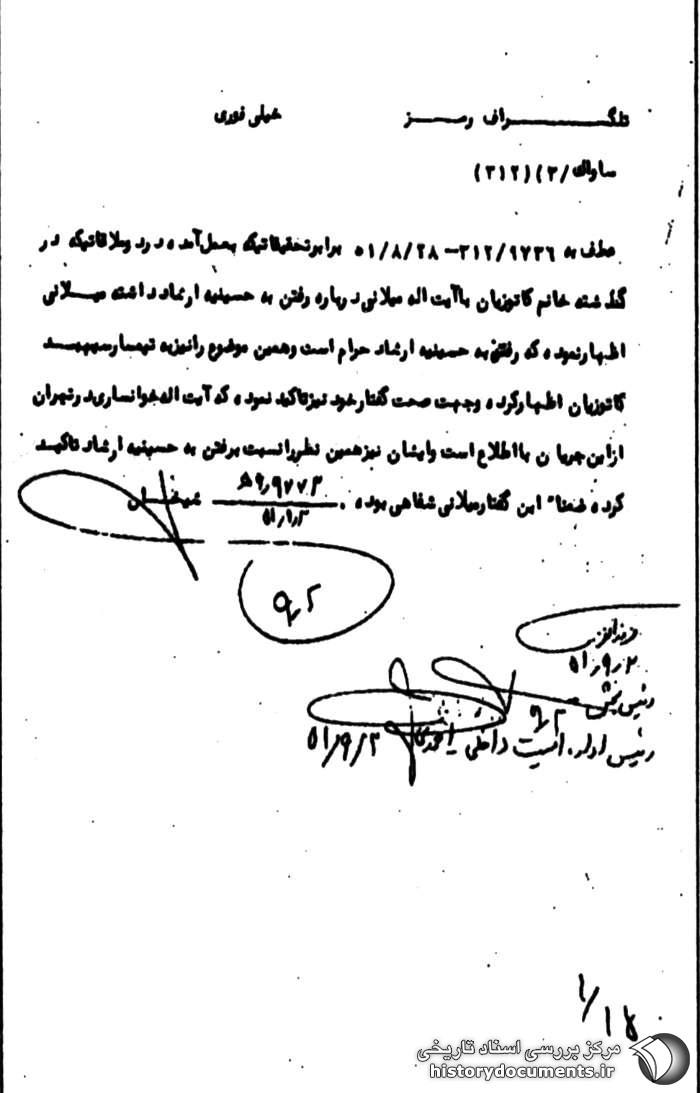 تلگراف رمز
خیلی فوری
ساواک/۳)(۳۱۲)
عطف به ۳۱۲/۹۷۳۶-۵۱/۸/۲۸ برابر تحقیقاتیکه بعمل آمده در دو ملاقاتیکه در
گذشته خانم کاتوزیان با آیت اله میلانی درباره رفتن به حسینیه ارشاد داشته میلانی
اظهار نموده که رفتن به حسینیه ارشاد حرام است و همین موضوع را نیز به تیمسار سپهبد
کاتوزیان اظهار کرده و جهت صحت گفتار خود نیز تاکید نموده که آیت اله خوانساری در تهران
از این جریان با اطلاع است و ایشان نیز همین نظر را نسبت برفتن به حسینیه ارشاد تاکید
کرده ضمنا" این گفتار میلانی شفاهی بوده .
شیخان
۹۲
۵۱،۹،۲
رئیس بخش
۹۲
رئیس اداره امنیت داخلی
۵۱/۹/۲
۱/۱۵
مرکز بررسی اسناد تاریخی
historydocuments.ir